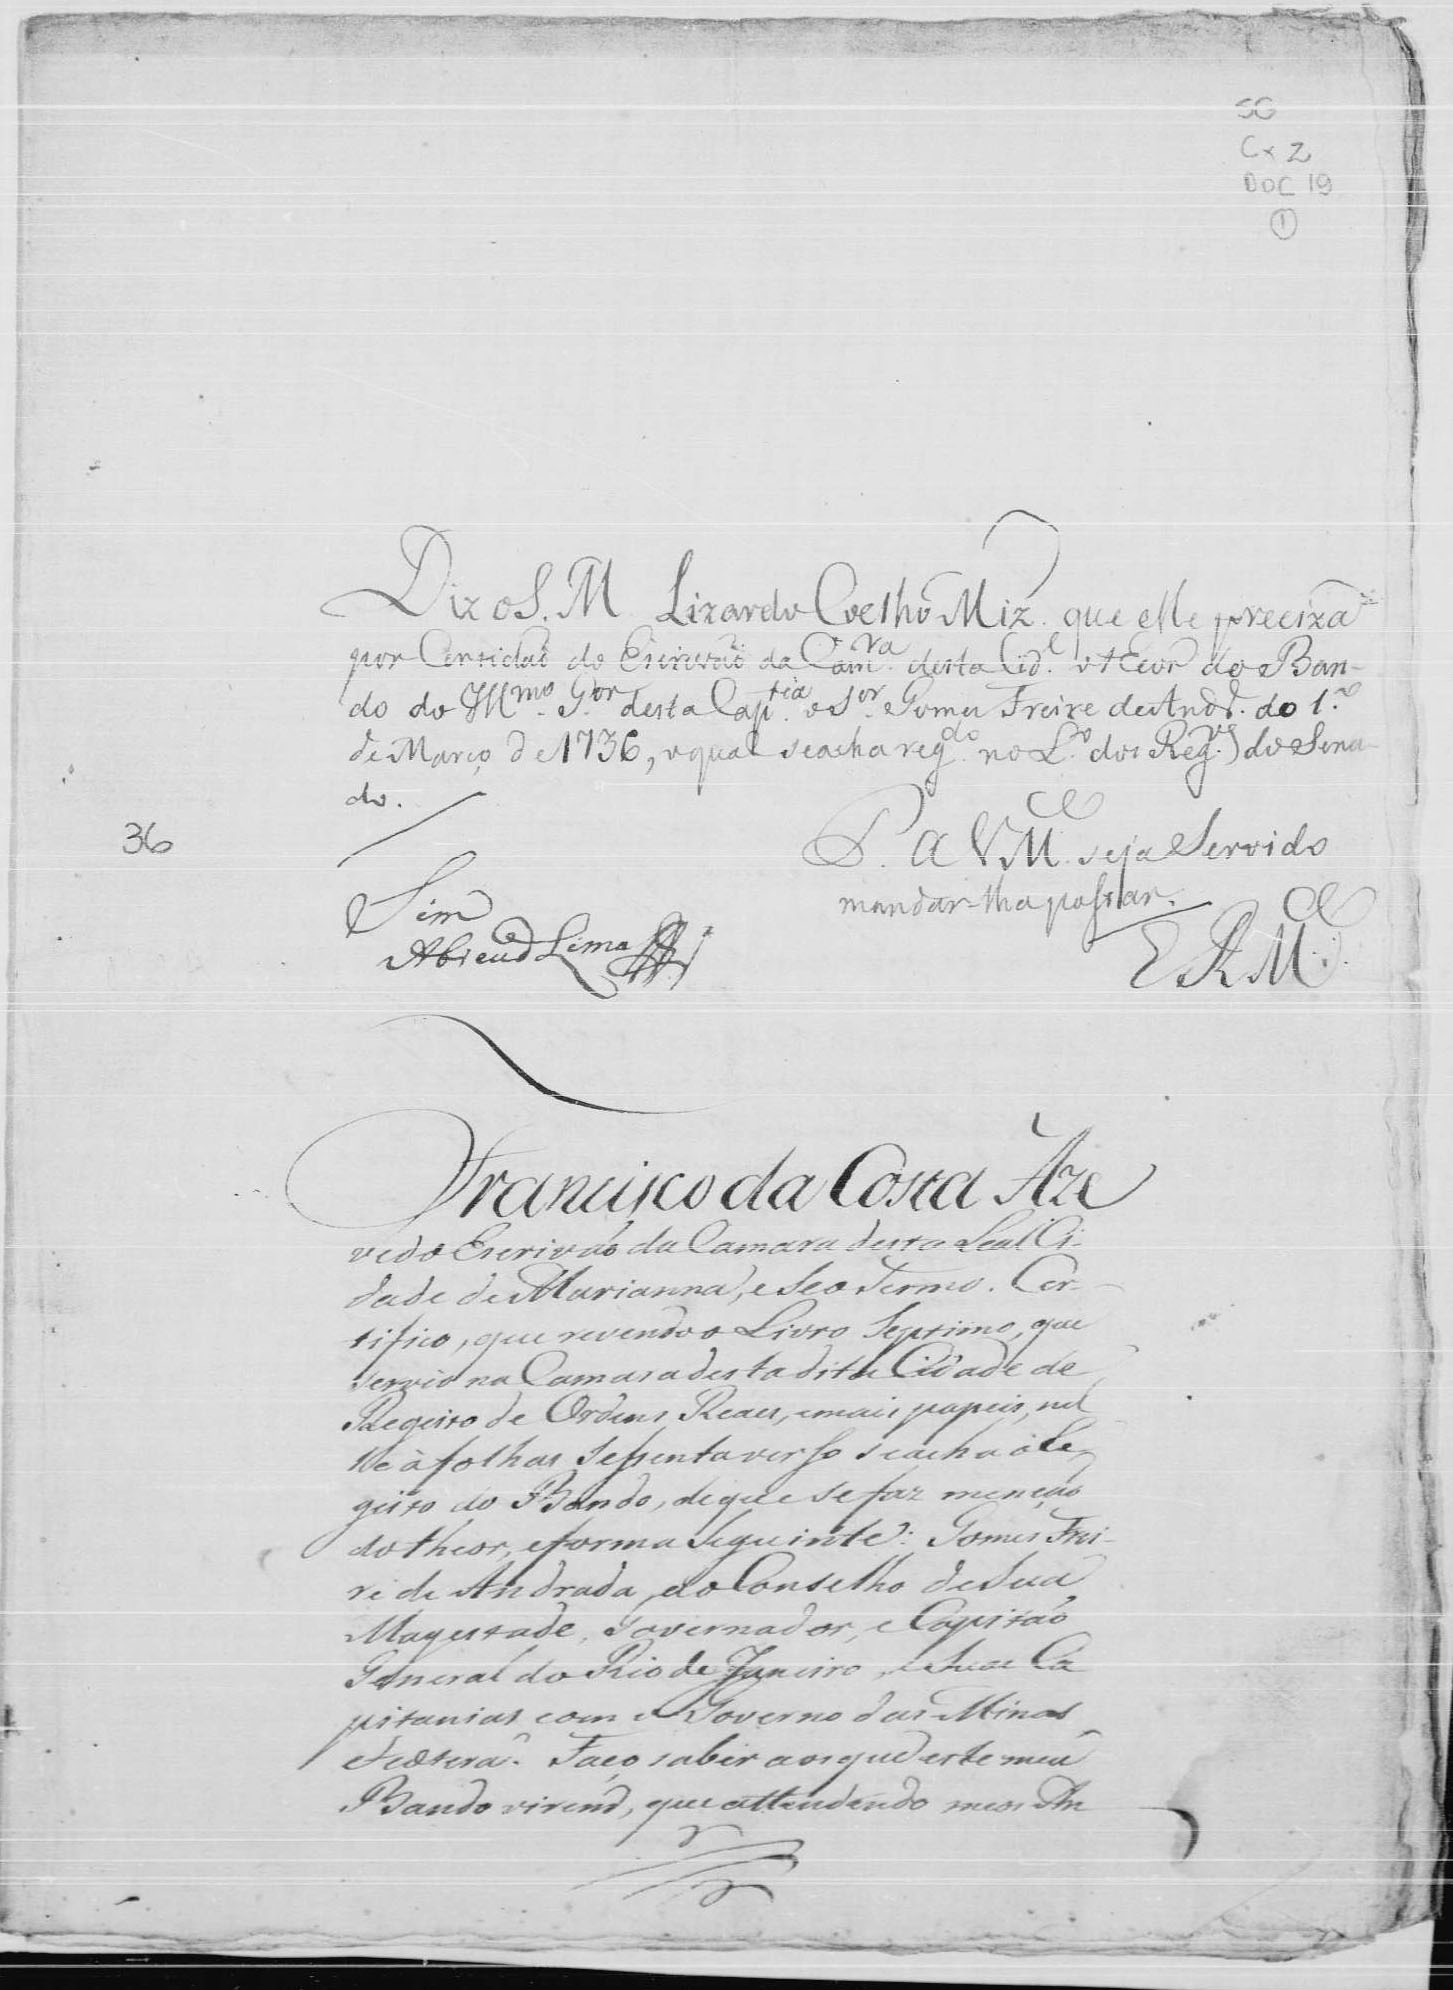 SG
Cx 2
DOC 19
1
Diz o S. M. Lizardo Coelho Miz. que elle preciza
por Certidaõ do Escrivaõ da Camra. desta Cide. o tEor do Ban-
do do Illmo. Gor. desta Captia. o Sor. Gomes Freire de Andr. do 1.o
de Março de 1736, o qual se acha regdo. no Lo. dos Regos. do Sena-
do.
36
P. a VMce. seja Servido
mandar-lha passar.
Sim
Abreu Lima
E R Mce.
Francisco da Costa Aze
vedo Escrivaõ da Camara desta Leal Ci-
dade de Marianna, e Seo Termo. Cer-
tifico, que revendo o Livro Septimo, que
servio na Camara desta dita Cidade de
Registo de Ordens Reaes, e mais papeis, nel
lle à folhas Sessenta verso se acha o Re
gisto do Bando, de que se faz mençaõ
do theor, e forma Seguinte: Gomes Frei-
re de Andrada, do Conselho de Sua
Magestade, Governador, e Capitaõ
General do Rio de Janeiro, e Suas Ca
pitanias com o Governo das Minas
etcetera. Faço saber aos que este meu
Bando virem, que attendendo meos An